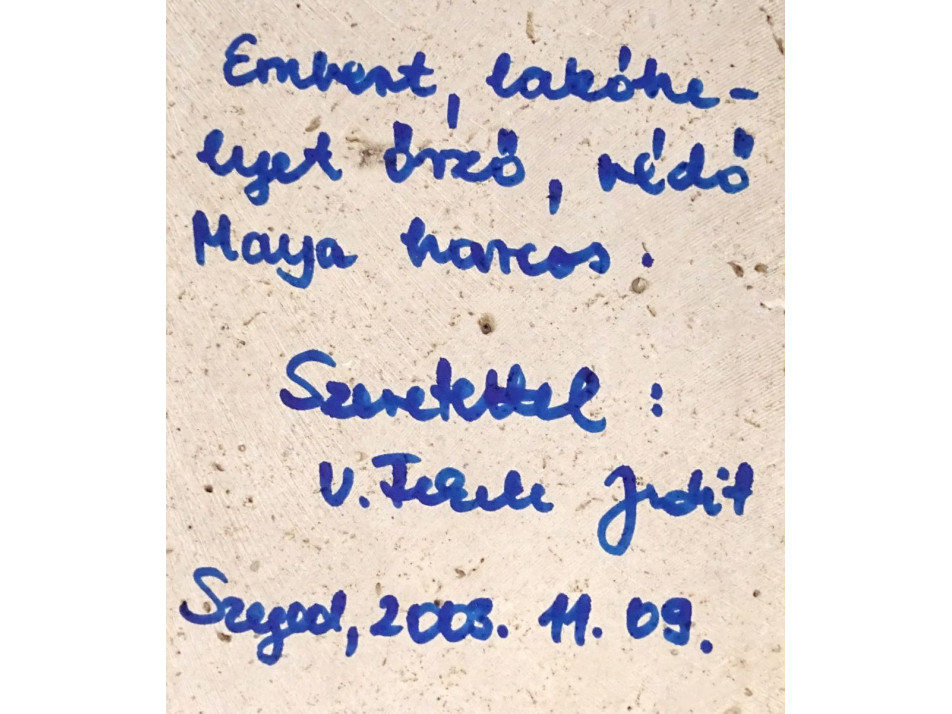 Embert, lakóhe-
lyet őrző, védő
Maya harcos.
Szeretettel:
V. Fekete Judit
Szeged, 2003. 11. 09.